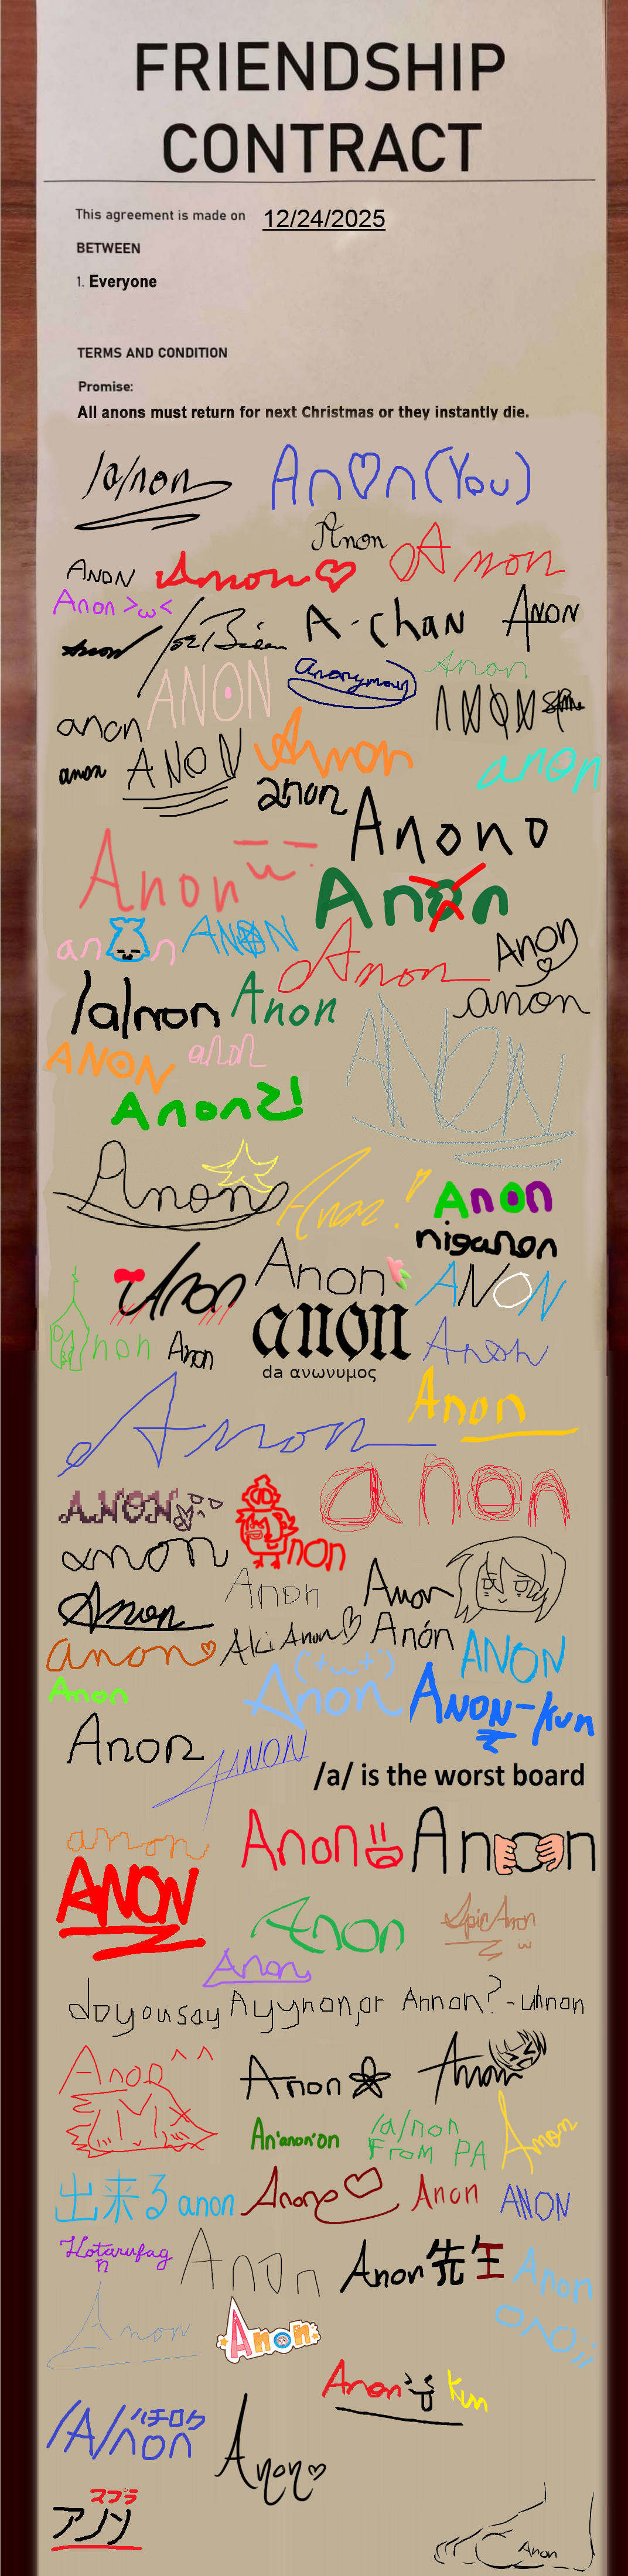 FRIENDSHIP
CONTRACT
This agreement is made on 12/24/2025
BETWEEN
1. Everyone
TERMS AND CONDITION
Promise:
All anons must return for next Christmas or they instantly die.
/a/non
Anon (You)
Anon
Anon
Anon
Anon
Anon >ω<
Anon
Joe Biden
A-chan
Anon
ANON
Anonymous
Anon
anon
ANON
anon
ANON
Anon
anon
anon
Anono
Anon
Anon
anon
ANON
Anon
Anon
/a/non
Anon
anon
ANON
anon
ANON
Anon2!
Anon
Anon!
Anon
niganon
Anon
Anon
ANON
anon
Anon
anon
da ανωνυμος
Anon
Anon
Anon
ANON
non
anon
anon
Anon
Anon
Anon
anon
Aki Anon
Anón
ANON
Anon
Anon
Anon-kun
Anon
ANON
/a/ is the worst board
anon
Anon
Anon
ANON
Anon
Epic Anon
Anon
do you say Ayynon, or Annon? -unnon
Anon ^^
Anon
Anon
An'anon'on
/a/non
FROM PA
Anon
出来る anon
Anon
Anon
ANON
Hotarufag
n
Anon
Anon先生
Anon
Anon
Anon
Anon
kun
/A/non
ハチロク
Anon
スプラ
アノン
Anon